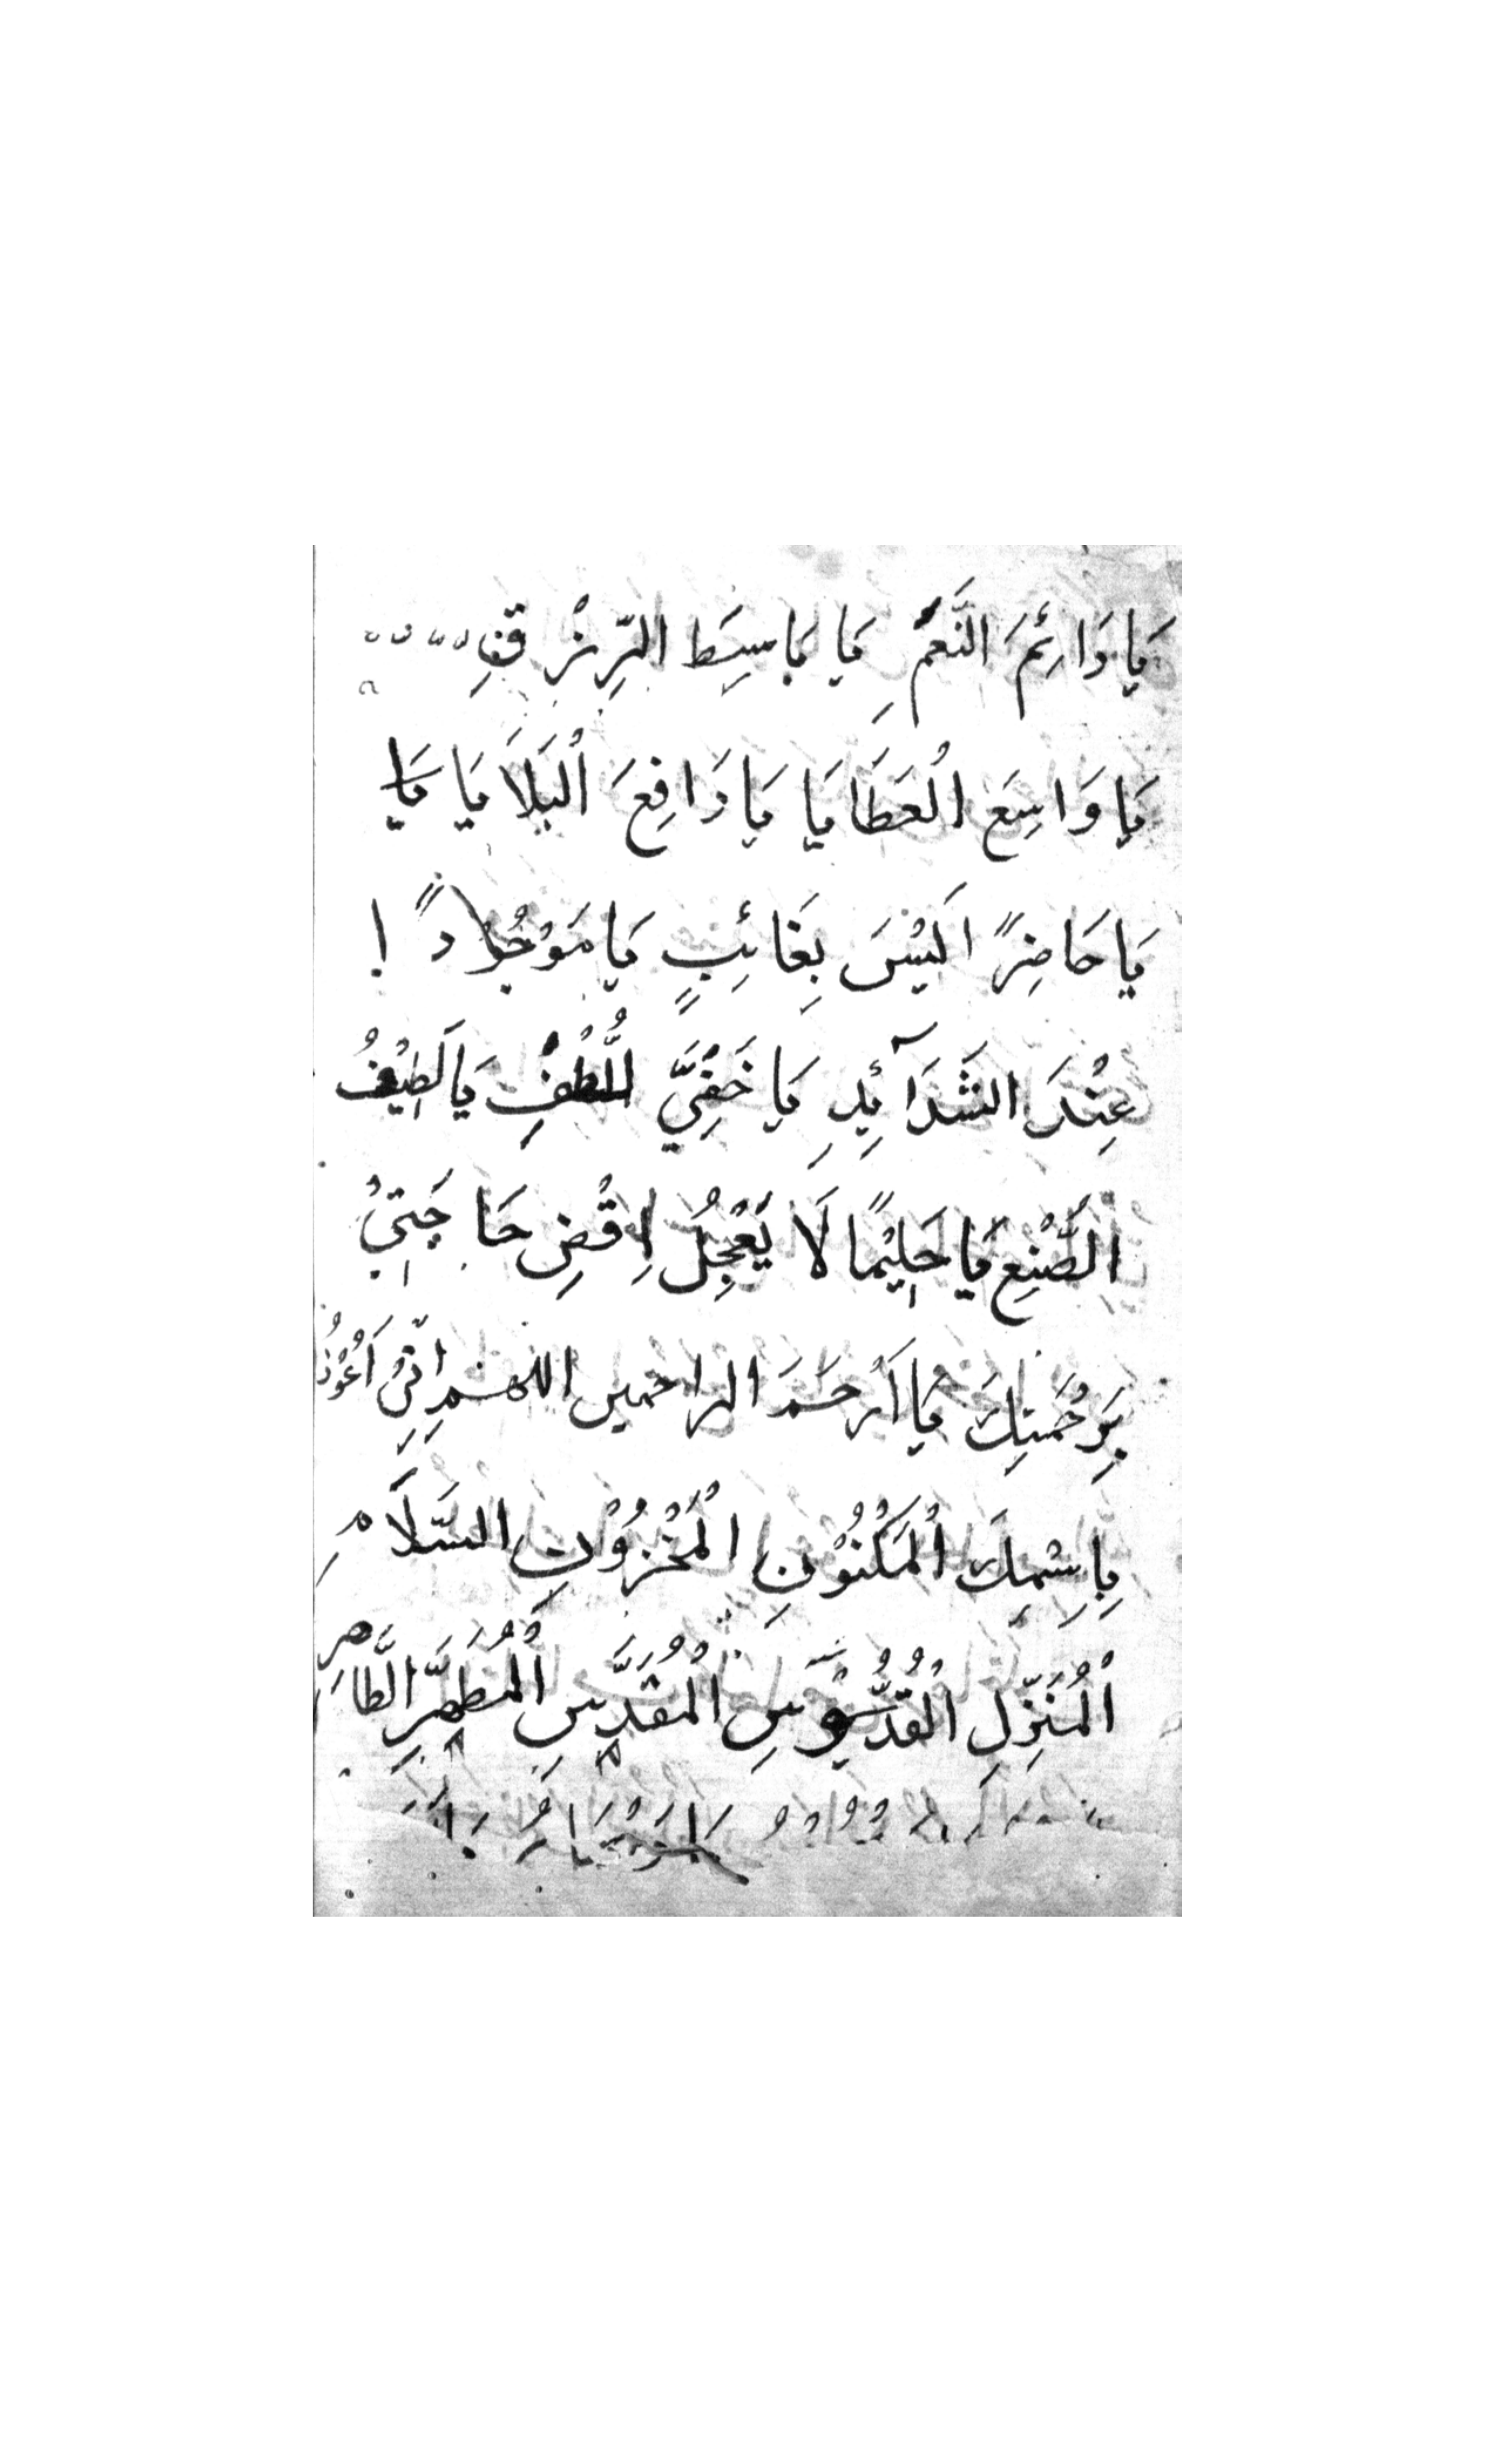 يَا دَائِمَ النَّعَمِ يَا بَاسِطَ الرِّزْقِ
يَا وَاسِعَ الْعَطَايَا يَا دَافِعَ الْبَلَايَا يَا
يَا حَاضِرً الَيْسَ بِغَائِبٍ يَا مَوْجُوْدً ا
عِنْدَ الشَّدَآئِدِ يَا خَفِيَّ اللُّطْفِ يَا لَطِيْفُ
الصَّنْعِ يَا حَلِيْمًا لَا يَعْجِلُ اِقْضِ حَاجَتِيْ
بِرَحْمَتِكَ يَا اَرْحَمَ الراحمين اللهم اِنِّيْ اَعُوْذُ
بِاِسْمِكَ الْمَكْنُوْنِ الْمَخْزُوْنِ السَّلَامِ
الْمُنَزِّلِ الْقُدُّوْسِ الْمُقَدَّسِ الْمُطَهَّرِ الطَّاهِرِ